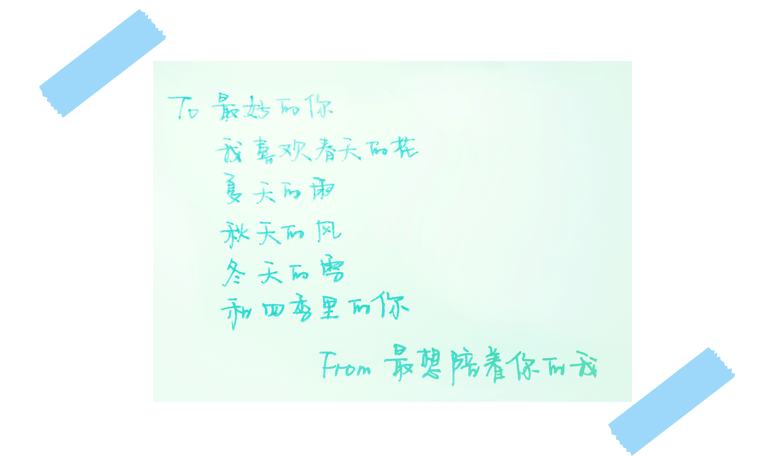 To 最好的你
我喜欢春天的花
夏天的雨
秋天的风
冬天的雪
和四季里的你
From 最想陪着你的我